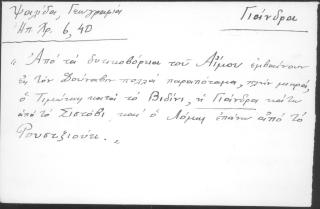 Ψαλίδα, Γεωγραφία
Γιάνδρα
Ηπ. Χρ. 6, 40
"Από τα δυτικοβόρεια του Αίμου εμβαίνουν
εις τον Δούναβην πολλά παραπόταμα, πλην μικρά,
ο Τιμώτης κατά το Βιδίνι, η Γιάνδρα κάτω
από το Σιστόβι και ο Λόμος επάνω από το
Ρουστζιούκι.„